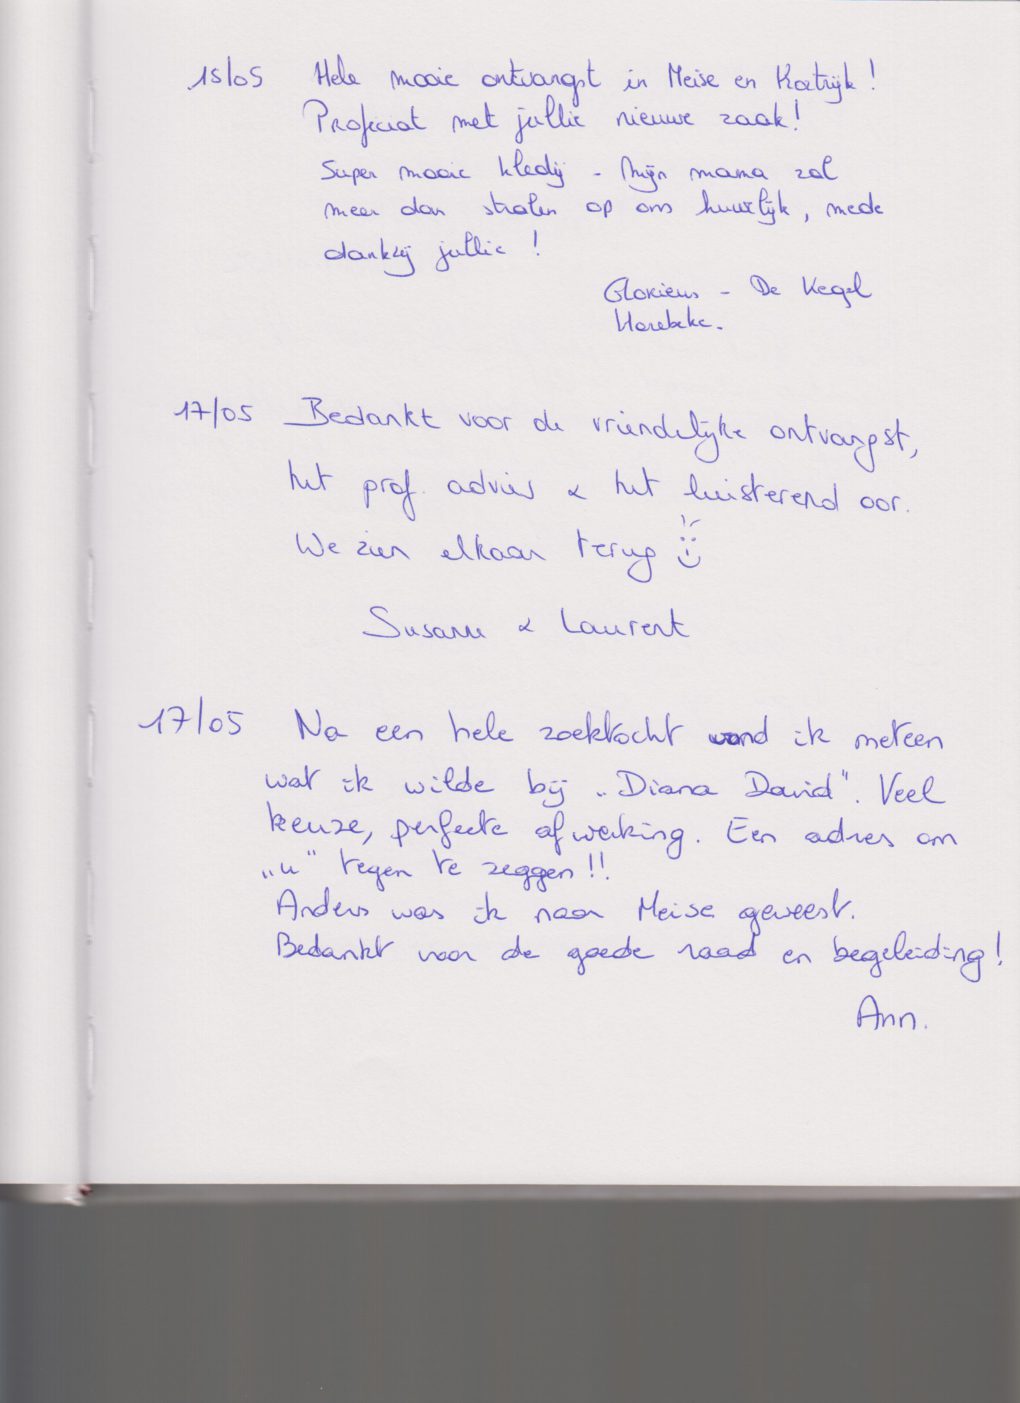 15/05 Hele mooie ontvangst in Meise en Kortrijk!
Proficiat met jullie nieuwe zaak!
Super mooie kledij - Mijn mama zal
meer dan stralen op ons huwelijk, mede
dankzij jullie!
Glorieus - De Kegel
Horebeke.
17/05 Bedankt voor de vriendelijke ontvangst,
het prof. advies & het luisterend oor.
We zien elkaar terug
Susanne & Laurent
17/05 Na een hele zoektocht vond ik meteen
wat ik wilde bij „Diana David". Veel
keuze, perfecte afwerking. Een adres om
„u" tegen te zeggen!!
Anders was ik naar Meise geweest.
Bedankt voor de goede raad en begeleiding!
Ann.